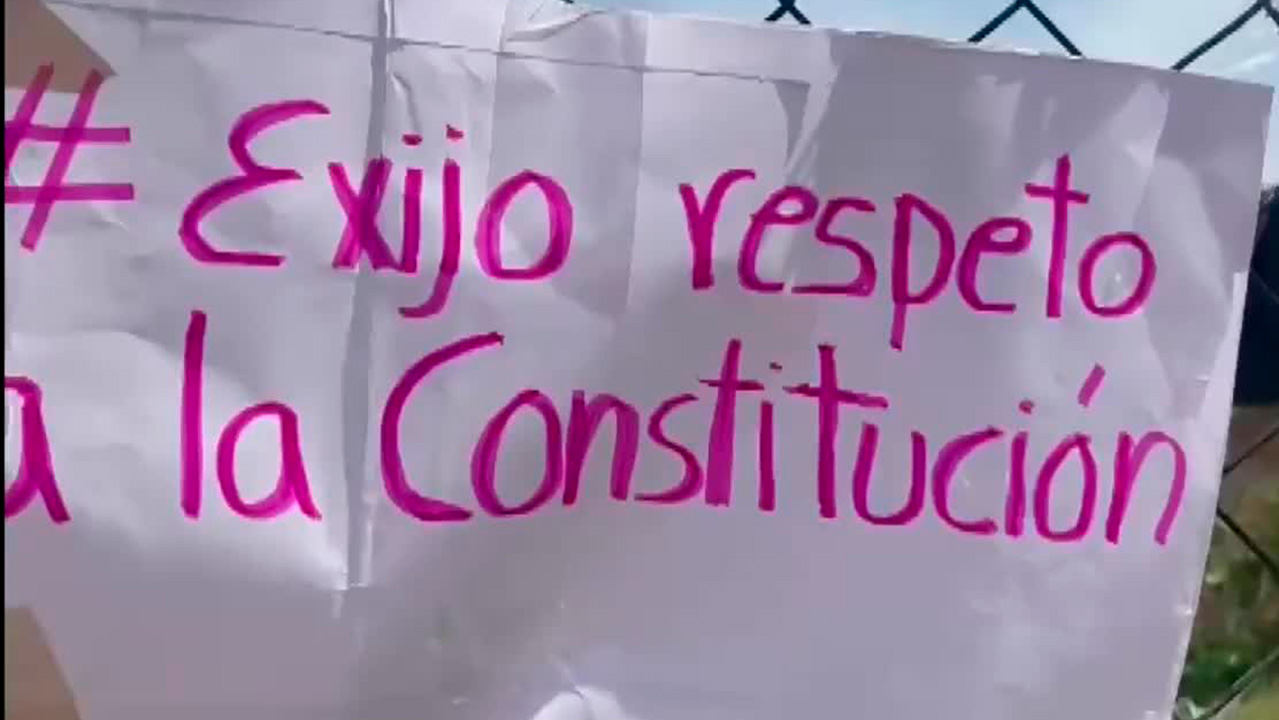 # Exijo respeto
a la Constitución